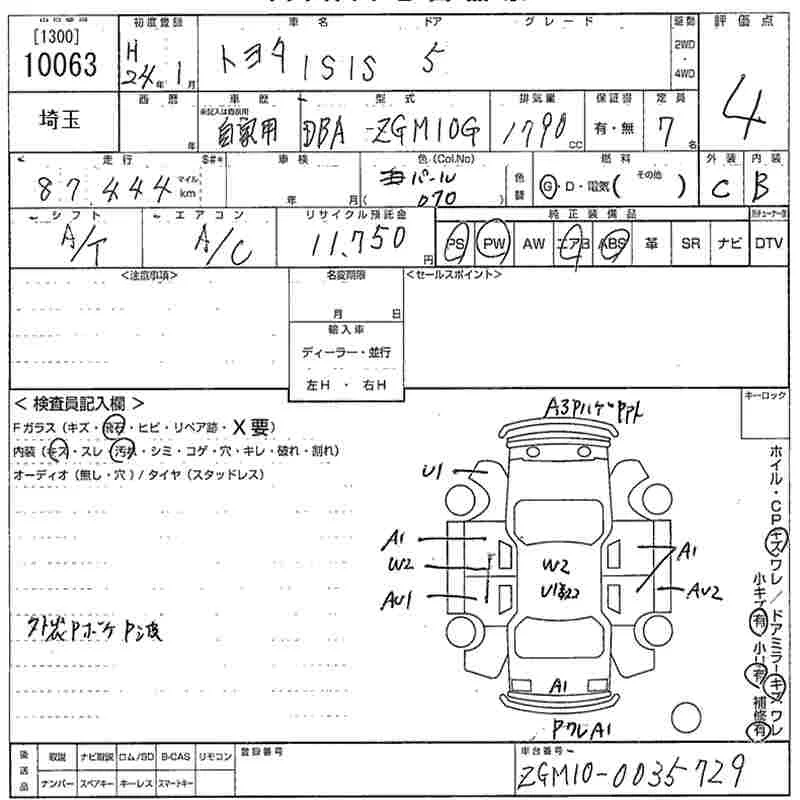 [1300]
10063
初度登録
H
24年 1月
車名
ドア
グレード
トヨタ ISIS 5
駆動
2WD
・
4WD
評価点
4
埼玉
西暦
年
車歴
未記入は自家用
自家用
型式
DBA-ZGM10G
排気量
1790
CC
保証書
有・無
定員
7
名
走行
87,444
マイル
km
S#*
車検
年 月
色 (Col.No)
パール
( 070 )
色替
燃料
G・D・電気( その他 )
外装
C
内装
B
シフト
A/T
エアコン
A/C
リサイクル預託金
11,750
円
純正装備品
PS PW AW エアB ABS 革 SR ナビ DTV
<注意事項>
名変期限
月 日
輸入車
ディーラー・並行
左H ・ 右H
<セールスポイント>
キーロック
< 検査員記入欄 >
Fガラス (キズ・飛石・ヒビ・リペア跡・X要)
内装 (キズ・スレ・汚れ・シミ・コゲ・穴・キレ・破れ・割れ)
オーディオ (無し・穴) / タイヤ (スタッドレス)
外装Pボケ P
A3Pハゲ
U1
A1
W2
AU1
W2
U1
A1
AU2
A1
PワレA1
ホイル・CPキズワレ / ドアミラーキズワレ
小キズ有 小凹有 補修有
後送品
取説 ナビ取説 ロム/SD B-CAS リモコン
ナンバー スペアキー キーレス スマートキー
登録番号
車台番号
ZGM10-0035729